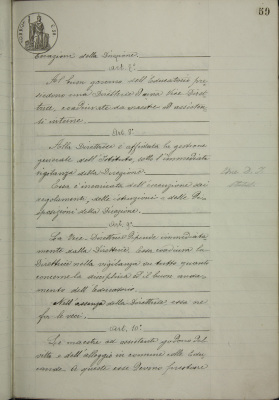 59
vocazione della Direzione
Art. 7°
Al buon governo dell'Educatorio pre
siedono una Direttrice
trice, coadiuvate da maestre ed assisten
ti interne
Art. 8°
Alla Direttrice è affidata la gestione
generale dell'Istituto, sotto l'immediata
vigilanza della Direzione.
Essa è incaricata dell'esecuzione dei
regolamenti, delle istruzioni e delle
della Direzione
Art. 9°
La Vice-Direttrice dipende immediata
mente dalla Direttrice. Essa coadiuva la
Direttrice nella vigilanza su tutto quanto
concerne la disciplina ed il buon anda
mento dell'Educatorio.
Nell'assenza della Direttrice essa ne
fa le veci.
Art. 10°
Le maestre ed assistenti godono del
vitto e dell'alloggio in comune colle Edu
cande. A queste esse devono prestare